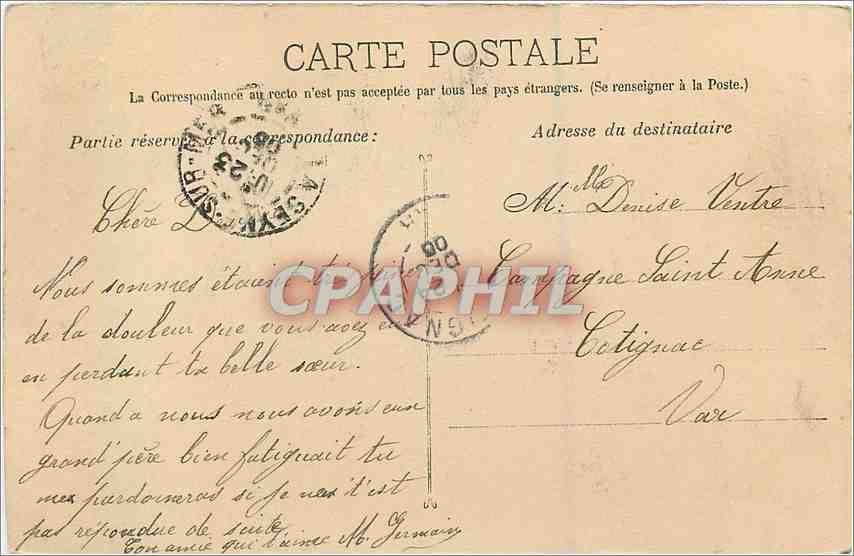 CARTE POSTALE
La Correspondance au recto n'est pas acceptée par tous les pays étrangers. (Se renseigner à la Poste.)
Partie réservée à la correspondance:
Adresse du destinataire
LA SEYNE-SUR-MER
23
DEC
Chère D
Nous sommes étaient
de la douleur que vous avez eu
en perdant ta belle sœur.
Quand a nous nous avons eu un
grand'père bien fatiguait tu
me pardoineras si je t'est
pas répondue de suite.
Ton amie qui t'aime M. Germain
M. Mlle Denise Ventre
Campagne Saint Anne
Cotignac
Var
DEC
CPAPHIL